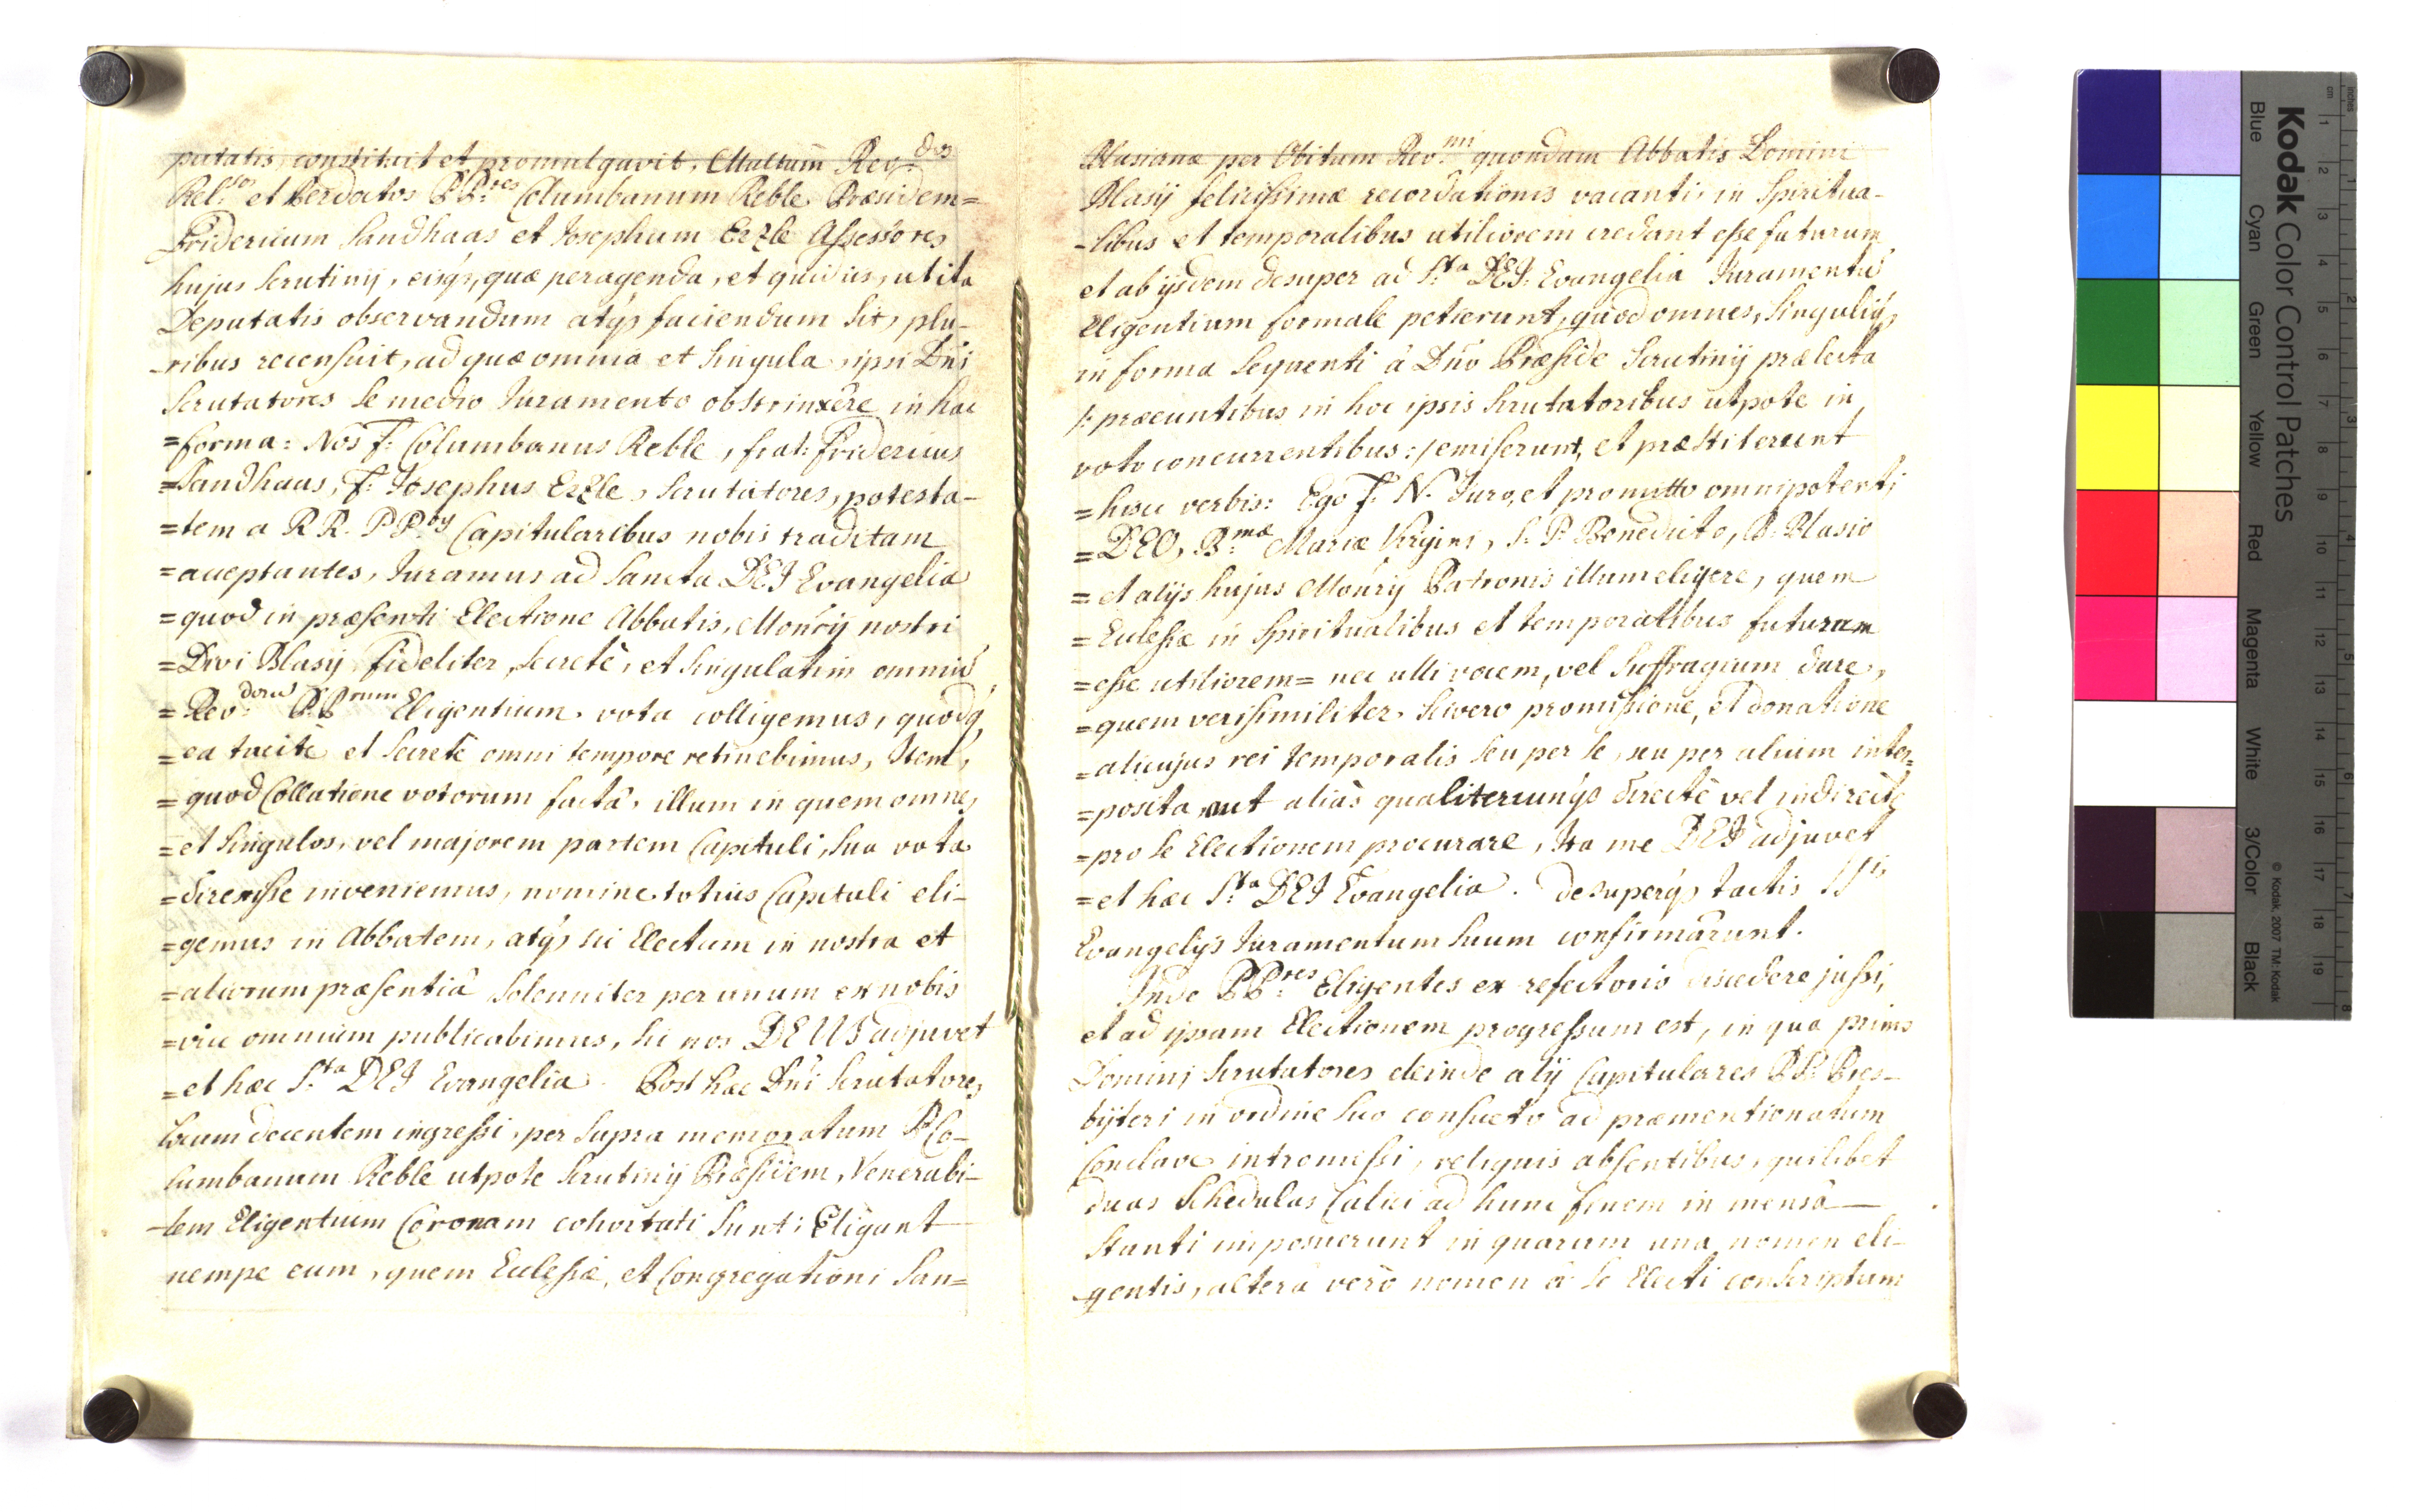 putatis, constituit et promulgavit. Multum Rev:dos
Rel:sos et Perdoctos PP:res Columbanum Reble Præsidem=
Fridericum Sandhaas et Josephum Erzle Assessores
hujus Scrutinij, eisq;, quæ peragenda, et quid iis, ut ita
Deputatis observandum atq; faciendum sit, plu-
-ribus recensuit, ad quæ omnia et singula ipsi Dn̄i
Scrutatores se medio Juramento obstrinxêre in hac
=forma: Nos F: Columbanus Reble, frat: Fridericus
=Sandhaas, F: Josephus Erzle, Scrutatores, potesta-
=tem a RR. PP:by Capitularibus nobis traditam
=acceptantes, Juramus ad Sancta DEJ Evangelia
=quod in præsenti Electione Abbatis, Mon̄rij nostri
=Divi Blasij fideliter, secretè, et singulatim omniū
=Rev:dorū PP:rum Eligentium vota colligemus, quodq;
=ea tacitè et secretè omni tempore retinebimus, Item,
=quod Collatione votorum factâ, illum in quem omnes
=et singulos, vel majorem partem Capituli, sua vota
=direxisse inveniemus, nomine totius Capituli eli-
=gemus in Abbatem, atq; sic Electum in nostra et
=aliorum præsentiâ solenniter per unum ex nobis
=vice omnium publicabimus, sic nos DEUS adjuvet
=et hæc S:ta DEJ Evangelia. Post hæc Dn̄i Scrutatores
locum decentem ingressi, per supra memoratum P. Co-
lumbanum Reble utpote Scrutinij Præsidem, Venerabi-
-lem Eligentium Coronam cohortati sunt: Eligant
nempe eum, quem Ecclesiæ, et Congregationi San=
Blasianæ per Obitum Rev:mi quondam Abbatis Domini
Blasij felicissimæ recordationis vacanti, in Spiritua-
-libus et temporalibus utiliorem credant esse futurum
et ab ijsdem desuper ad S:ta DEJ: Evangelia Juramentū
Eligentium formale petierunt, quod omnes, Singuliq;
in forma sequenti à Dn̄o Præside Scrutinij prælecta
/: præeuntibus in hoc ipsis Scrutatoribus utpote in
voto concurrentibus :/ emiserunt, et præstiterunt
=hisce verbis: Ego F. N. Juro, et promitto omnipotenti
=DEO, B:mæ Mariæ Virgini, S. P. Benedicto, D. Blasio
=et alijs hujus Mon̄rij Patronis illum eligere, quem
=Ecclesiæ in Spiritualibus et temporalibus futurum
=esse utiliorem= nec illi vocem, vel Suffragium dare,
=quem verisimiliter scivero promissione, et donatione
=alicujus rei temporalis seu per se, seu per alium inter=
=posita, aut aliàs qualitercunq; directè vel indirectè
=pro se Electionem procurare, Ita me DEJ adjuvet
=et hæc S:ta DEJ Evangelia. Desuperq; tactis SS:is
Evangelijs Juramentum suum confirmârunt.
Inde PP:res Eligentes ex refectorio discedere jussi,
et ad ipsam Electionem progressum est, in qua primo
Domini Scrutatores deinde alij Capitulares PP: Pres-
byteri in ordine suo consueto ad præmentionatum
Conclave intromissi, reliquis absentibus, quilibet
duas Schedulas Calici ad hunc finem in mensâ
stanti imposuerunt in quarum una nomen eli-
gentis, alterâ verò nomen à se Electi conscriptum